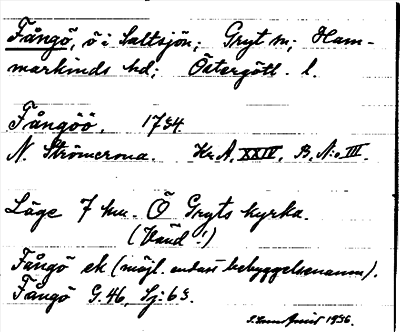 Fångö, ö i Saltsjön; Gryt sn; Ham-
markinds hd; Östergötl. l.
Fångöö. 1734.
N. Strömcrona. Hr A, XXIV, B, N:o III.
Läge 7 km. Ö Gryts kyrka.
(Vänd!)
Fångö ek (möjl. endast bebyggelsenamn).
Fångö G. 46, Sj: 63.
1936.